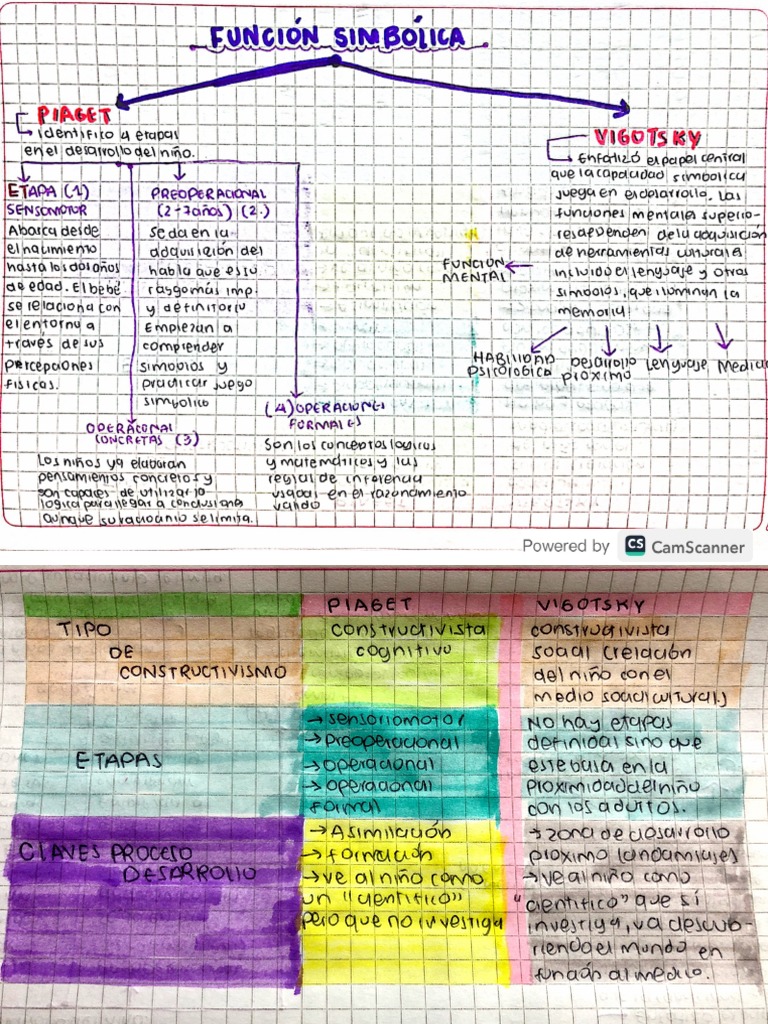 FUNCIÓN SIMBÓLICA
PIAGET
Identifico 4 etapas
en el desarrollo del niño.
ETAPA (1)
SENSOMOTOR
Abarca desde
el nacimiento
hasta los dos años
de edad. El bebé
se relaciona con
el entorno a
través de sus
percepciones
físicas.
PREOPERACIONAL
(2-7años) (2.)
Se da en la
adquisición del
habla que es su
rasgo más imp.
y definitorio
Empiezan a
comprender
simbolos y
practicar juego
simbolico
OPERACIONAL
CONCRETAS (3)
Los niños ya elaboran
pensamientos concretos y
son capaces de utilizar la
logica para llegar a conclusiones
aunque su raciocinio se limita.
(4) OPERACIONES
FORMALES
Son los conceptos logicos
y matemáticos y las
reglas de inferencia
usadas en el razonamiento
valido
VIGOTSKY
Enfatizó el papel central
que la capacidad simbolica
juega en el desarrollo. Las
funciones mentales superio-
res dependen de la adquisición
de herramientas culturales
incluido el lenguaje y otros
simbolos, que iluminan la
memoria.
FUNCIÓN
MENTAL
HABILIDAD
PSICOLOGICA
Desarrollo
próximo
Lenguaje
Medio
Powered by CS CamScanner
PIAGET
VIGOTSKY
TIPO
DE
CONSTRUCTIVISMO
Constructivista
cognitivo
constructivista
social (relación
del niño con el
medio sociocultural.)
ETAPAS
→ sensoriomotor
→ Preoperacional
→ operacional
→ operacional
formal
No hay etapas
definidas sino que
este basa en la
proximidad del niño
con los adultos.
CLAVES PROCESO
DESARROLLO
→ Asimilación
→ formación
→ ve al niño como
un "cientifico"
pero que no investiga
→ zona de desarrollo
próximo (andamiajes
→ ve al niño como
"cientifico" que sí
investiga, va descub-
riendo el mundo en
función al medio.